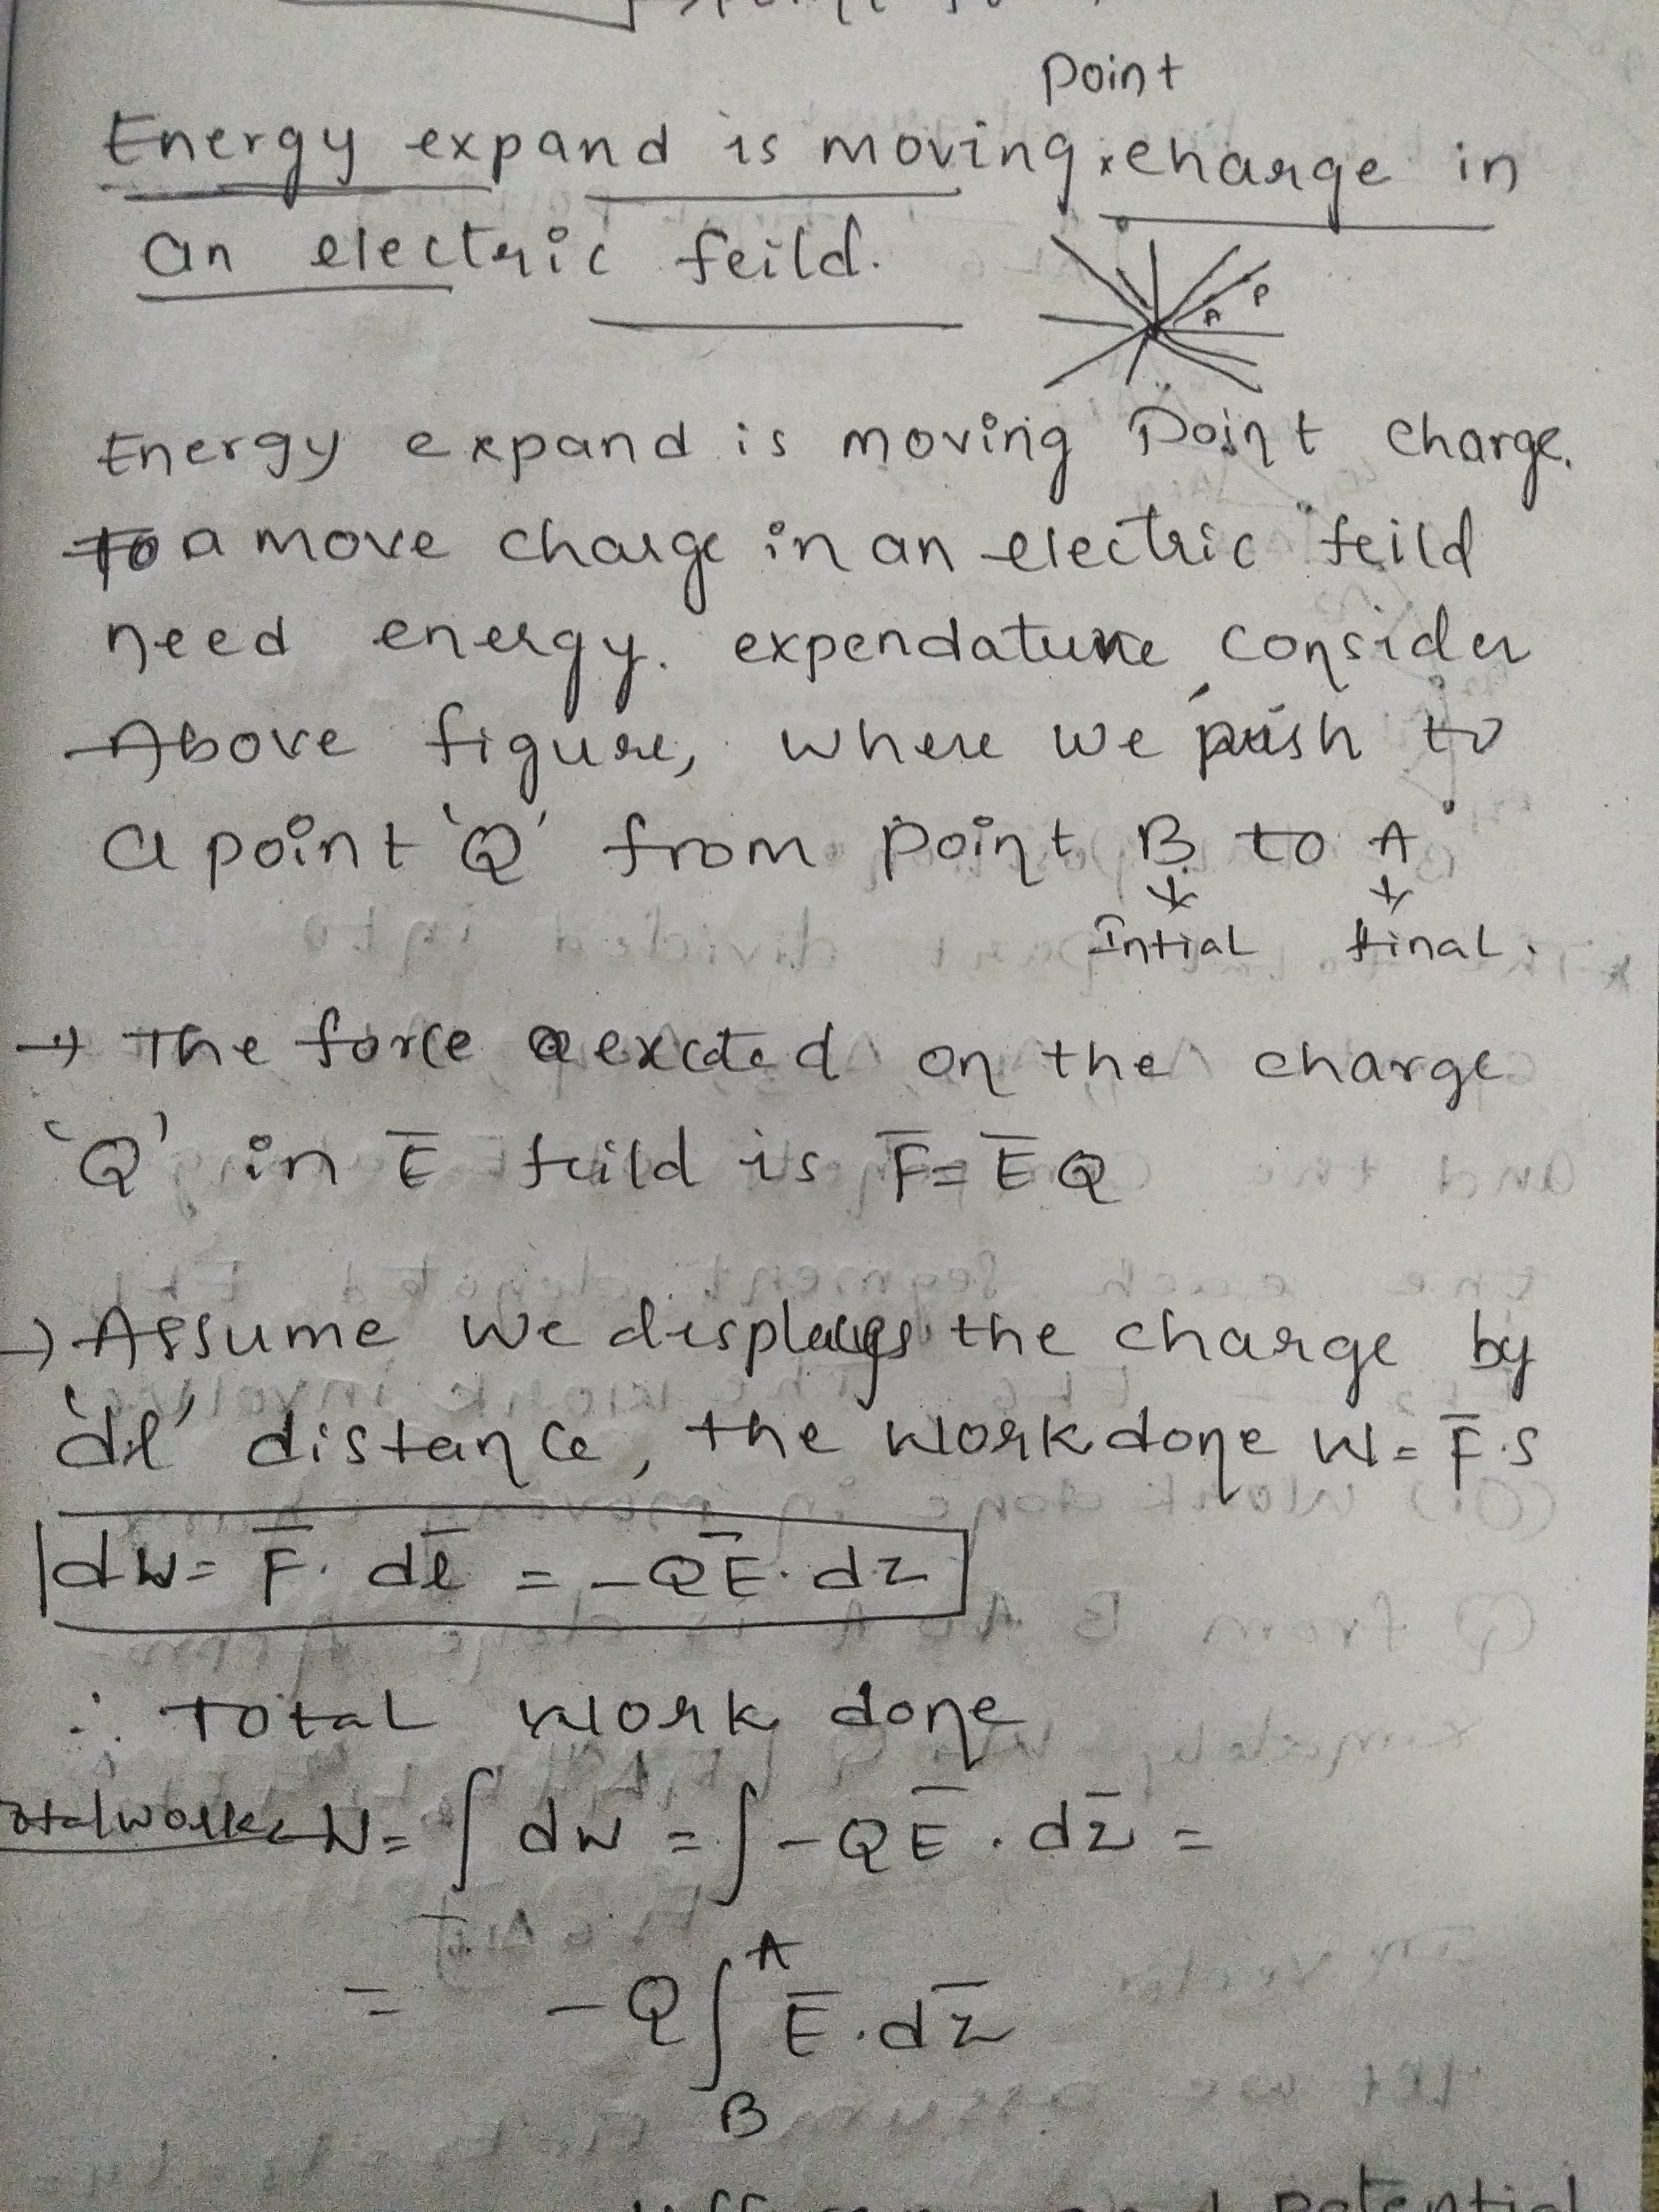 point
Energy expand is moving x charge in
an electric feild.
A P
Energy expand is moving Point charge.
To a move charge in an electric feild
need energy. expendature, consider
Above figure, where we push to
a point 'Q' from point B to A
Intial final.
→ The force execated on the charge
'Q' in E̅ feild is F̅ = E̅ Q
→ Assume we displaces the charge by
'dl' distance, the workdone W = F̅.S
dW = F̅. dl̅ = -QE̅. dz
∴ Total work done
Total work W = ∫ dW = ∫ -QE̅ . dz̅ =
A
= -Q ∫ E̅.dz̅
B
Potential